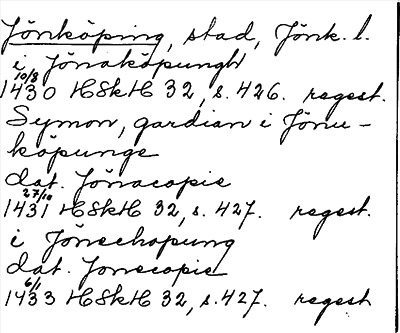 Jönköping, stad, Jönk. l.
i Jönaköpungh
10/8 1430 HSkH 32, s. 426. regest.
Symon, gardian i Jönu-
köpunge
dat. Jönacopie
27/10 1431 HSkH 32, s. 427. regest.
i Jönechopung
dat. Jonecopie
6/1 1433 HSkH 32, s. 427. regest